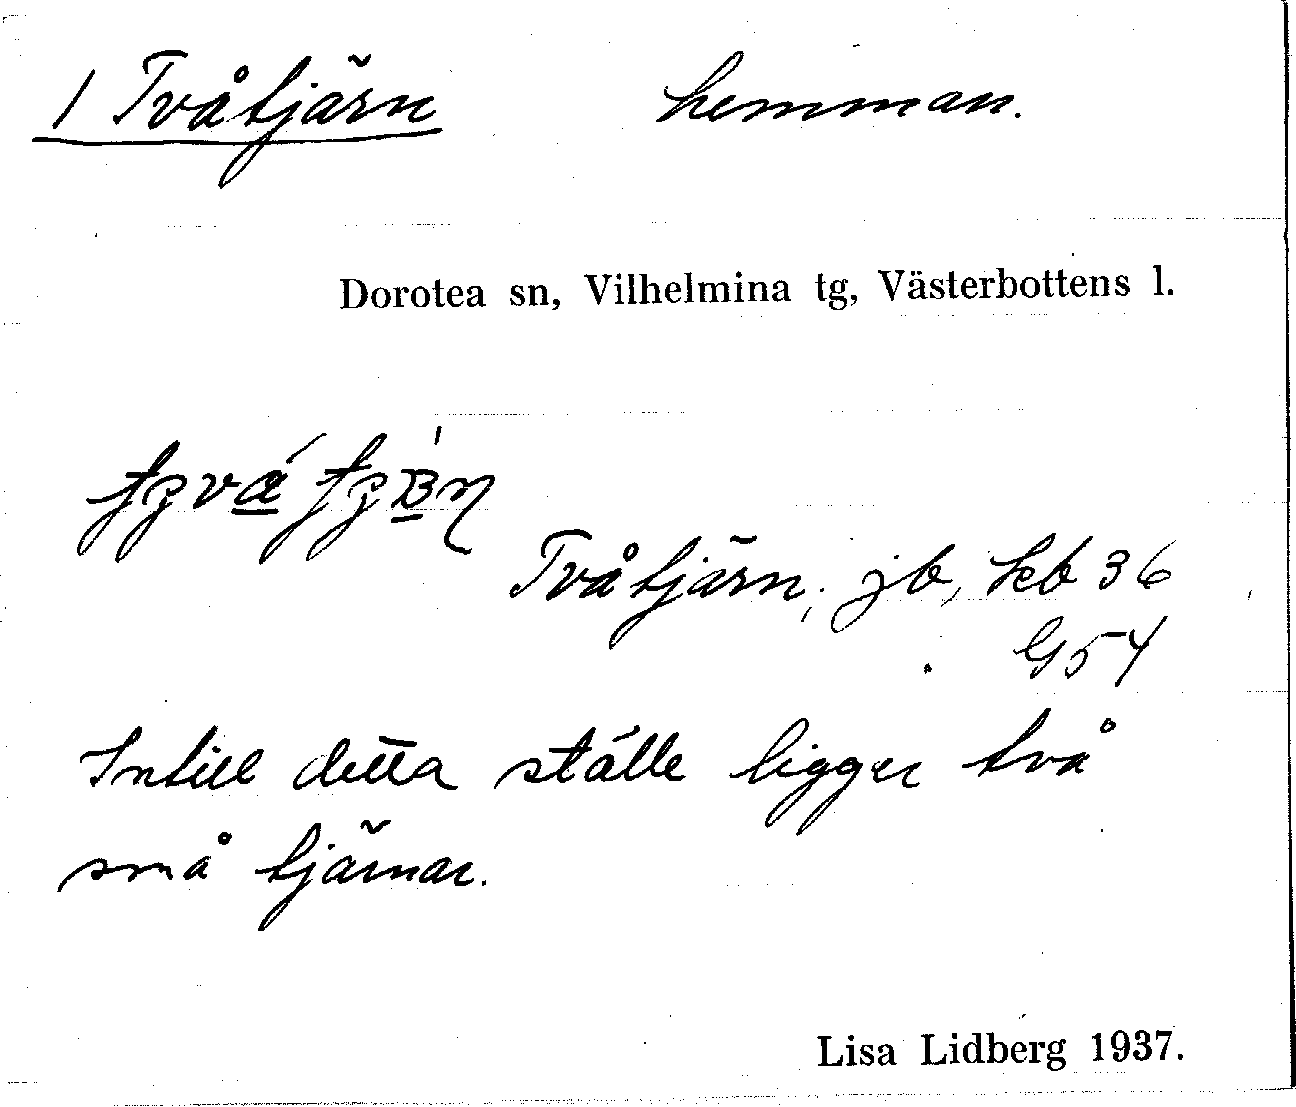 1 Tvåtjärn hemman.
Dorotea sn, Vilhelmina tg, Västerbottens l.
Tvåtjärn, jb, kb 36
G54
Intill detta ställe ligger två
små tjärnar.
Lisa Lidberg 1937.